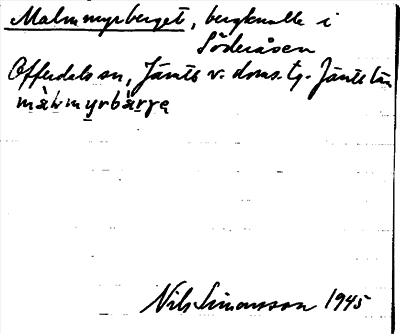 Malmmyrberget, bergknalle i
Söderåsen
Offerdals sn, Jämts v. doms. tg. Jämtl. län
Nils Simonsson 1945